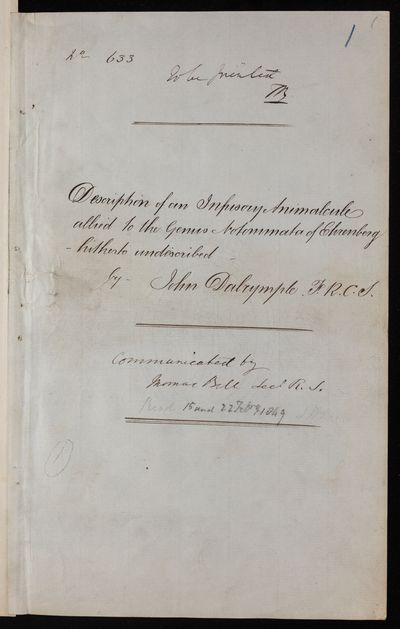 1
No 633
To be printed
TB
Description of an Infusory Animalcule
allied to the Genus Notommata of Ehrenberg
- hitherto undescribed -
by - John Dalrymple F.R.C.S.
Communicated by
Thomas Bell Sec. R.S.
Read 15 and 22 Feby 1849